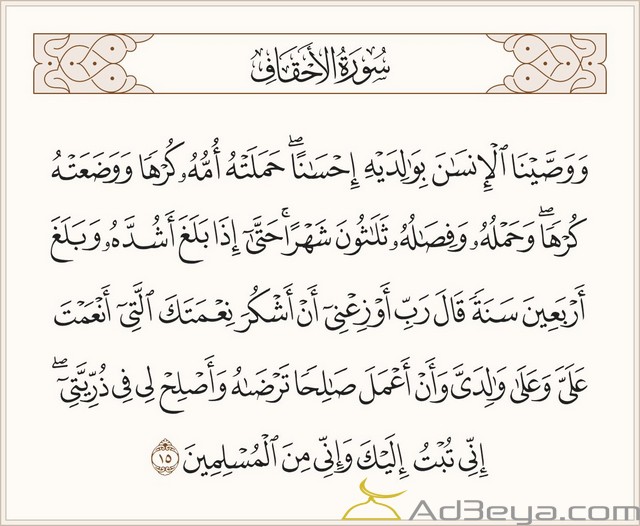 سُورَةُ الأَحْقَافِ
وَوَصَّيْنَا ٱلْإِنسَٰنَ بِوَٰلِدَيْهِ إِحْسَٰنًاۖ حَمَلَتْهُ أُمُّهُۥ كُرْهًا وَوَضَعَتْهُ
كُرْهًاۖ وَحَمْلُهُۥ وَفِصَٰلُهُۥ ثَلَٰثُونَ شَهْرًاۚ حَتَّىٰٓ إِذَا بَلَغَ أَشُدَّهُۥ وَبَلَغَ
أَرْبَعِينَ سَنَةً قَالَ رَبِّ أَوْزِعْنِىٓ أَنْ أَشْكُرَ نِعْمَتَكَ ٱلَّتِىٓ أَنْعَمْتَ
عَلَىَّ وَعَلَىٰ وَٰلِدَىَّ وَأَنْ أَعْمَلَ صَٰلِحًا تَرْضَىٰهُ وَأَصْلِحْ لِى فِى ذُرِّيَّتِىٓۖ
إِنِّى تُبْتُ إِلَيْكَ وَإِنِّى مِنَ ٱلْمُسْلِمِينَ ١٥
Ad3eya.com